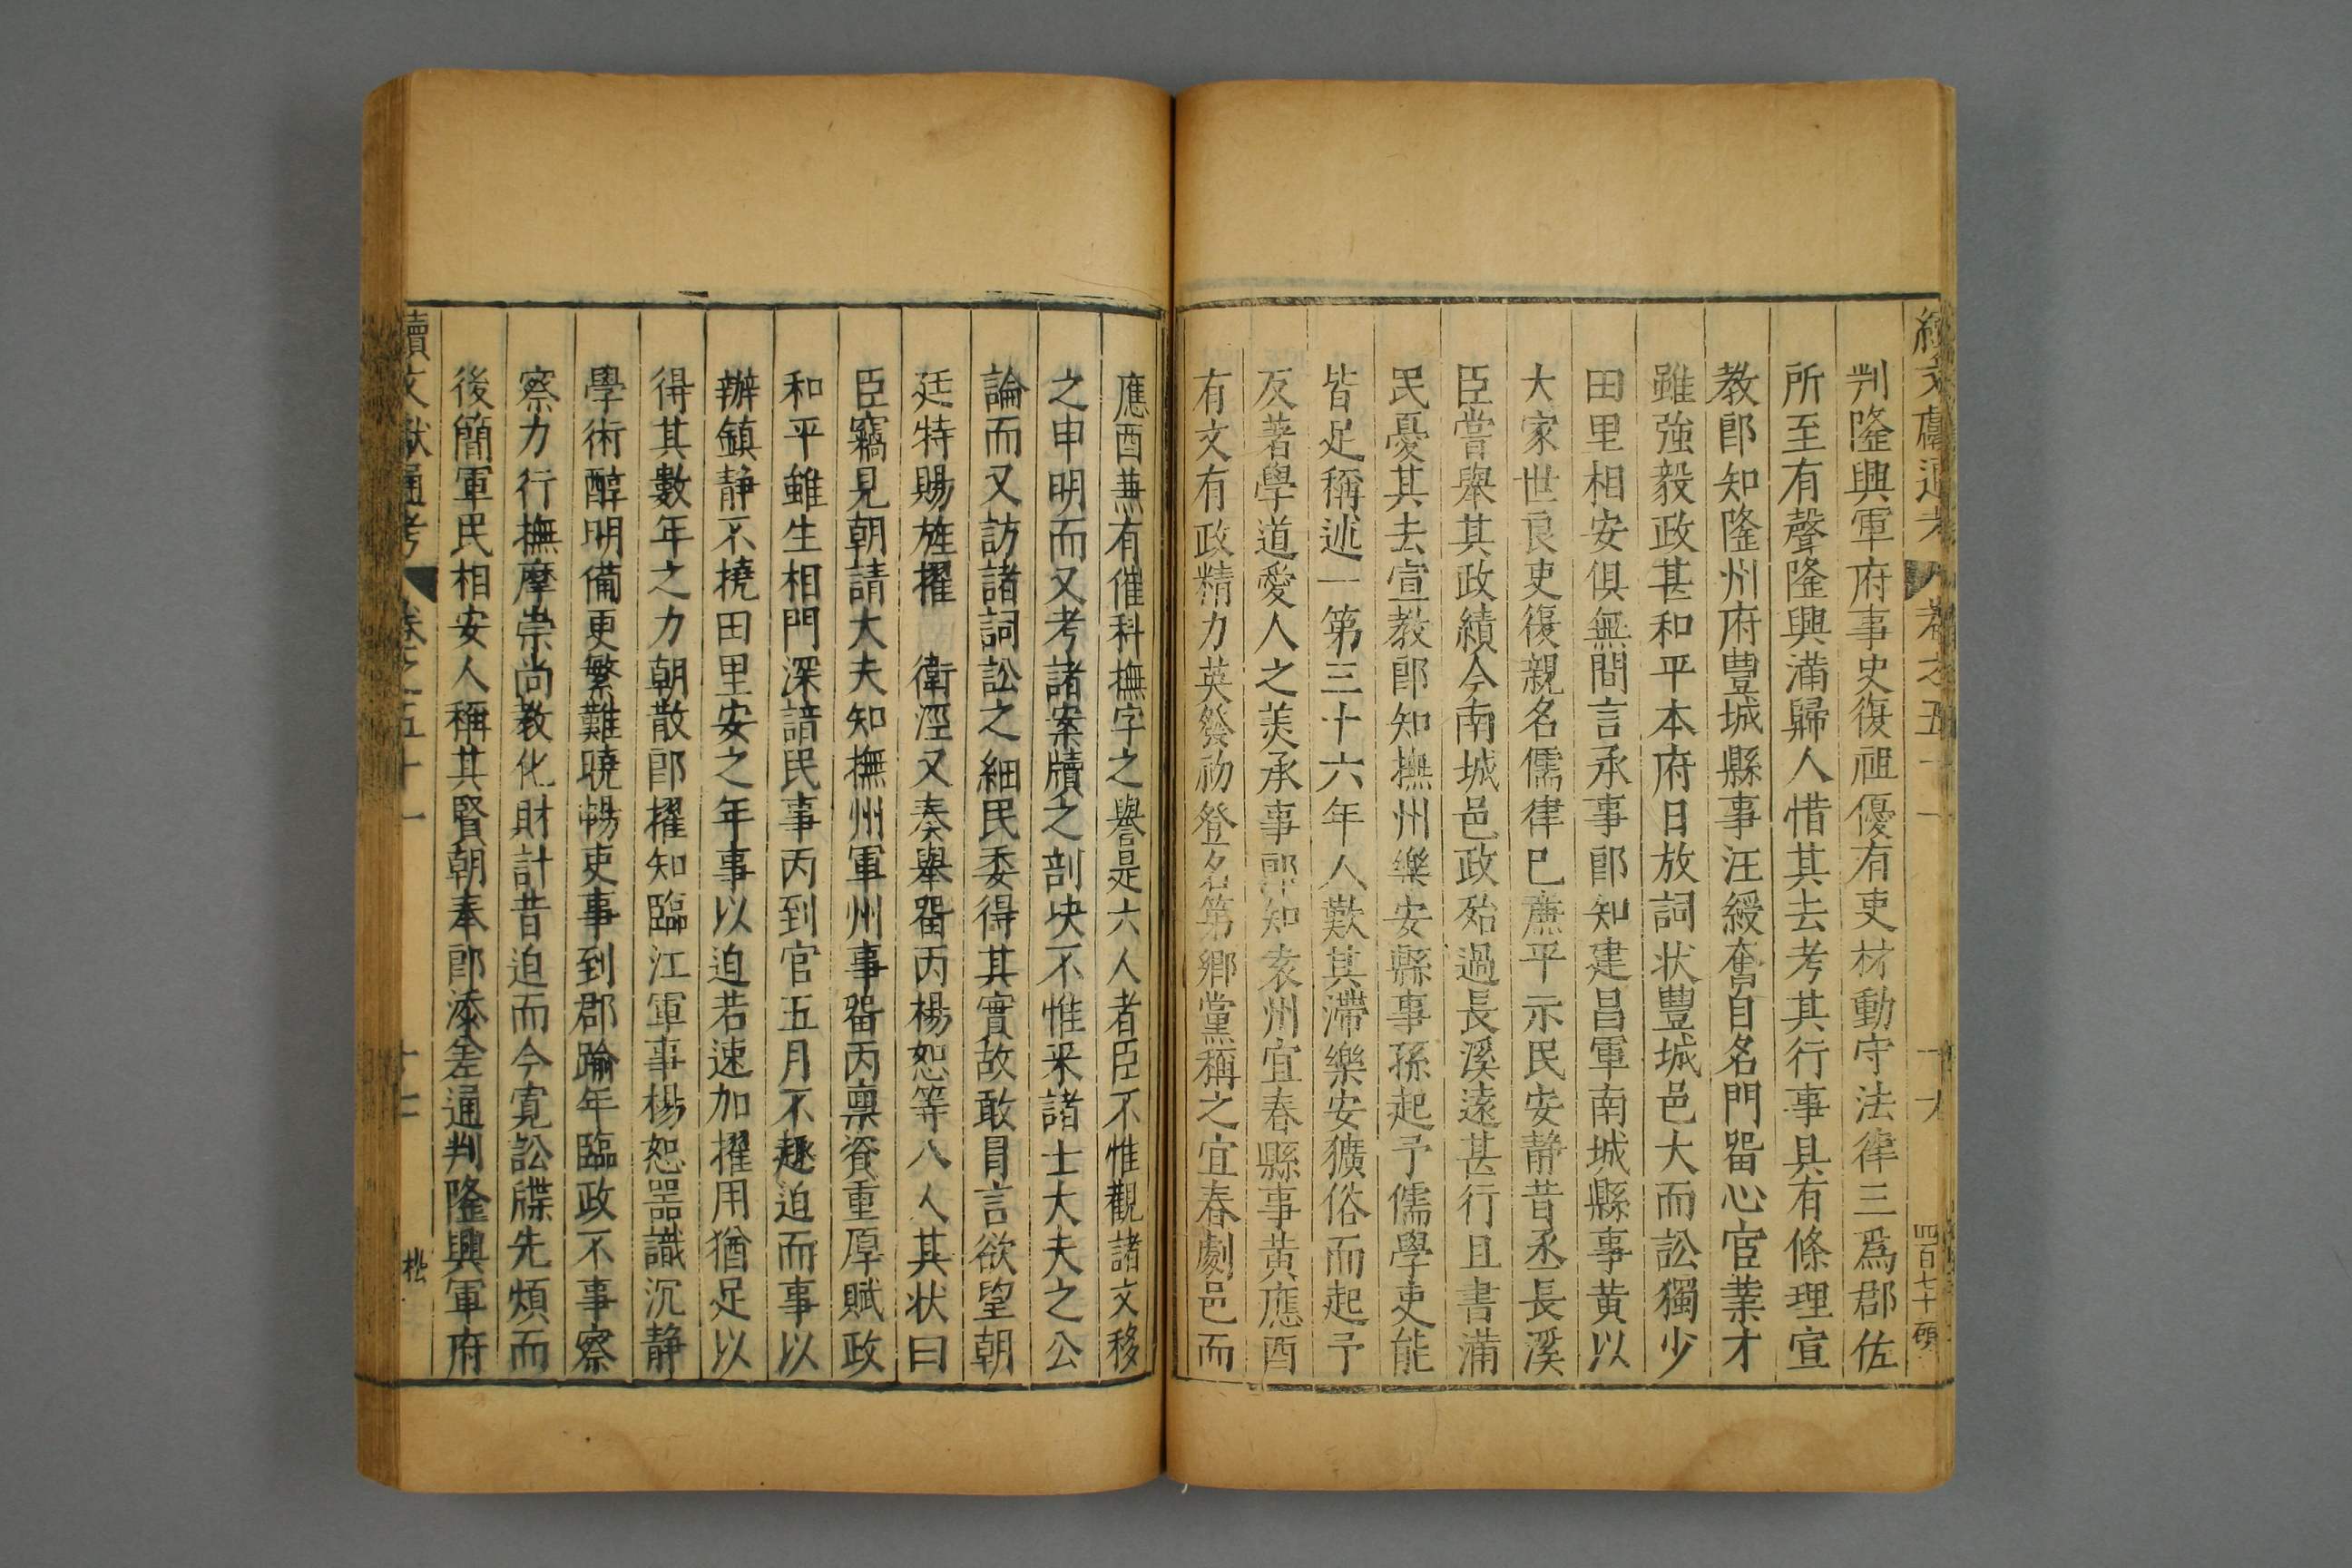 續文獻通考 卷之五十一 十六 四百七十 碩
判隆興軍府事史復祖優有吏材動守法律三爲郡佐
所至有聲隆興滿歸人惜其去考其行事具有條理宣
教郎知隆州府豐城縣事汪綬奮自名門畱心宦業才
雖強毅政甚和平本府日放詞狀豐城邑大而訟獨少
田里相安俱無間言承事郎知建昌軍南城縣事黄以
大家世良吏復親名儒律已廉平示民安靜昔丞長溪
臣嘗舉其政績今南城邑政殆過長溪遠甚行且書滿
民憂其去宣教郎知撫州樂安縣事孫起予儒學吏能
皆足稱述一第三十六年人歎其滯樂安獷俗而起予
反著學道愛人之美承事郎知袁州宜春縣事黄應酉
有文有政精力英發初登名第鄉黨稱之宜春劇邑而
應酉兼有催科撫字之譽是六人者臣不惟觀諸文移
之申明而又考諸案牘之剖决不惟采諸士大夫之公
論而又訪諸詞訟之細民委得其實故敢冐言欲望朝
廷特賜旌擢 衛涇又奏舉畱丙楊恕等八人其状曰
臣竊見朝請大夫知撫州軍州事畱丙禀資重厚賦政
和平雖生相門深諳民事丙到官五月不趣迫而事以
辦鎮静不撓田里安之年事以迫若速加擢用猶足以
得其數年之力朝散郎擢知臨江軍事楊恕器識沉静
學術醇明備更繁難曉暢吏事到郡踰年臨政不事察
察力行撫摩崇尚教化財計昔迫而今寛訟牒先煩而
後簡軍民相安人稱其賢朝奉郎添差通判隆興軍府
續文獻通考 卷之五十一 十七